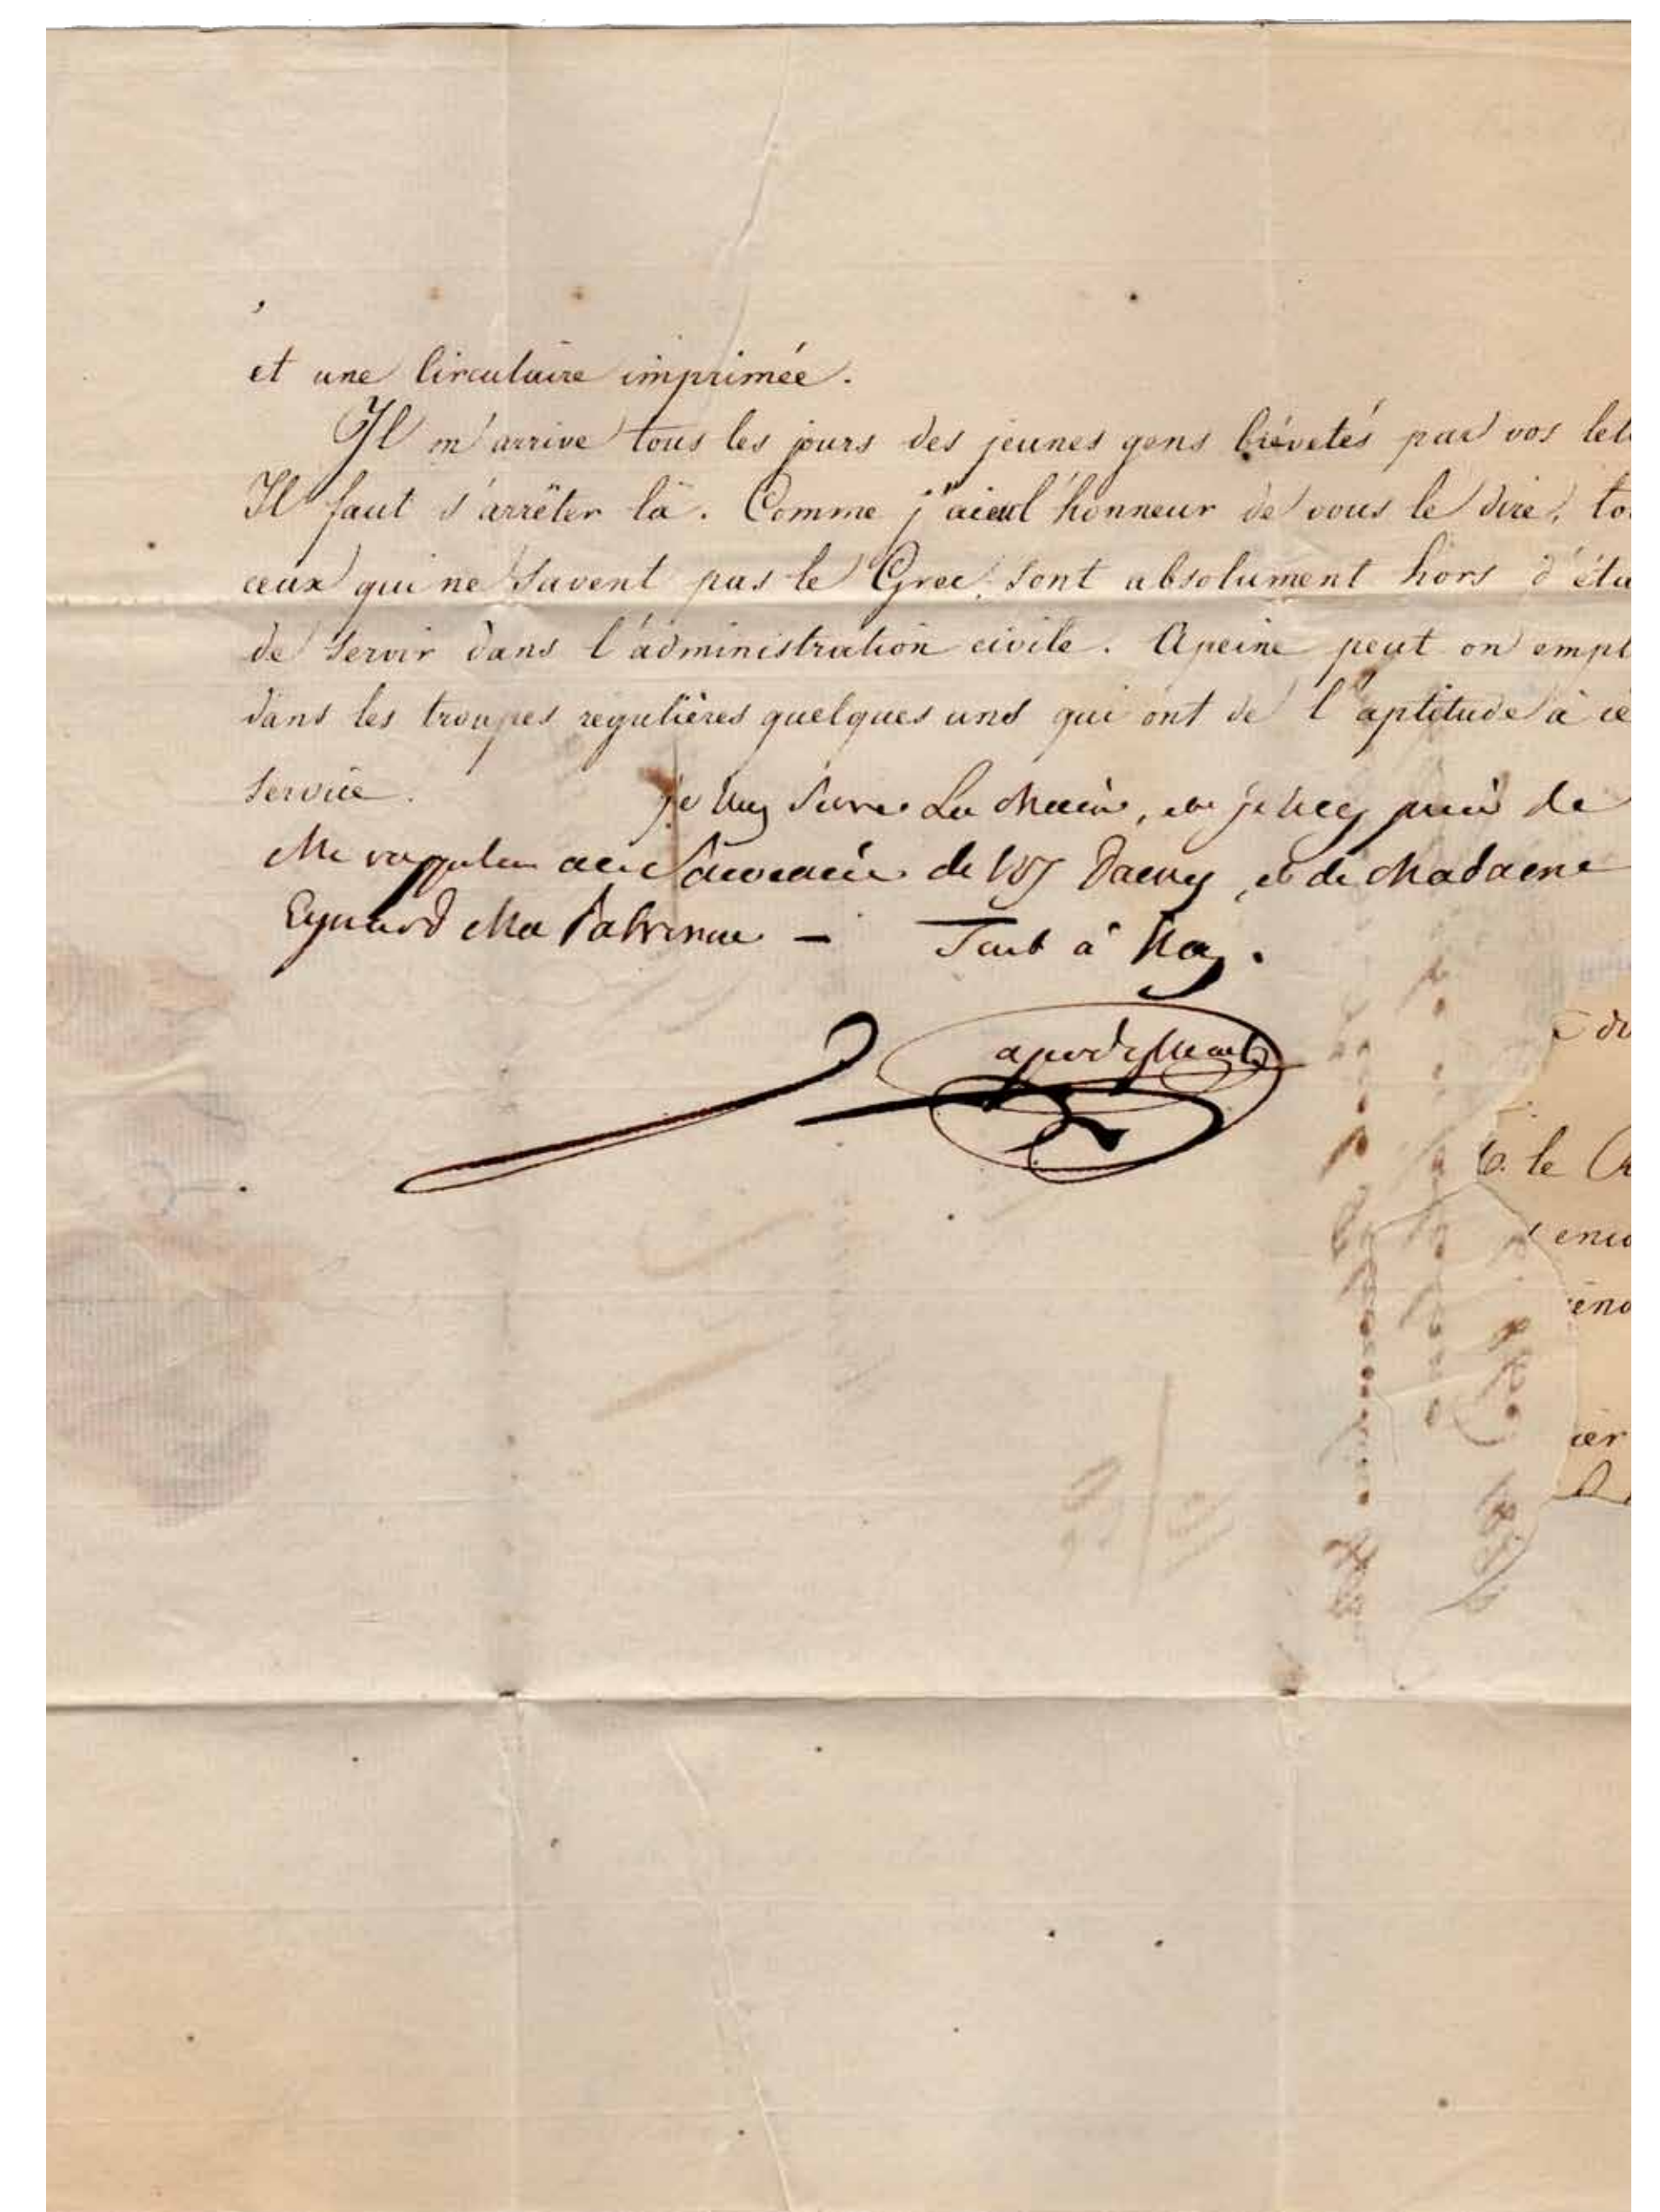 et une Circulaire imprimée.
Il m'arrive tous les jours des jeunes gens brévetés par vos let
Il faut s'arrêter là. Comme j'ai eu l'honneur de vous le dire, to
ceux qui ne savent pas le Grec, sont absolument hors d'éta
de servir dans l'administration civile. A peine peut on empl
dans les troupes regulières quelques uns qui ont de l'aptitude à ce
service. je vous serre La Main, et je vous prie de
Me rappeller au Souvenir de Vos Dames, et de Madame
Eynard Ma Patronne — Tout à Vous.
di
le
enco
éno
ier